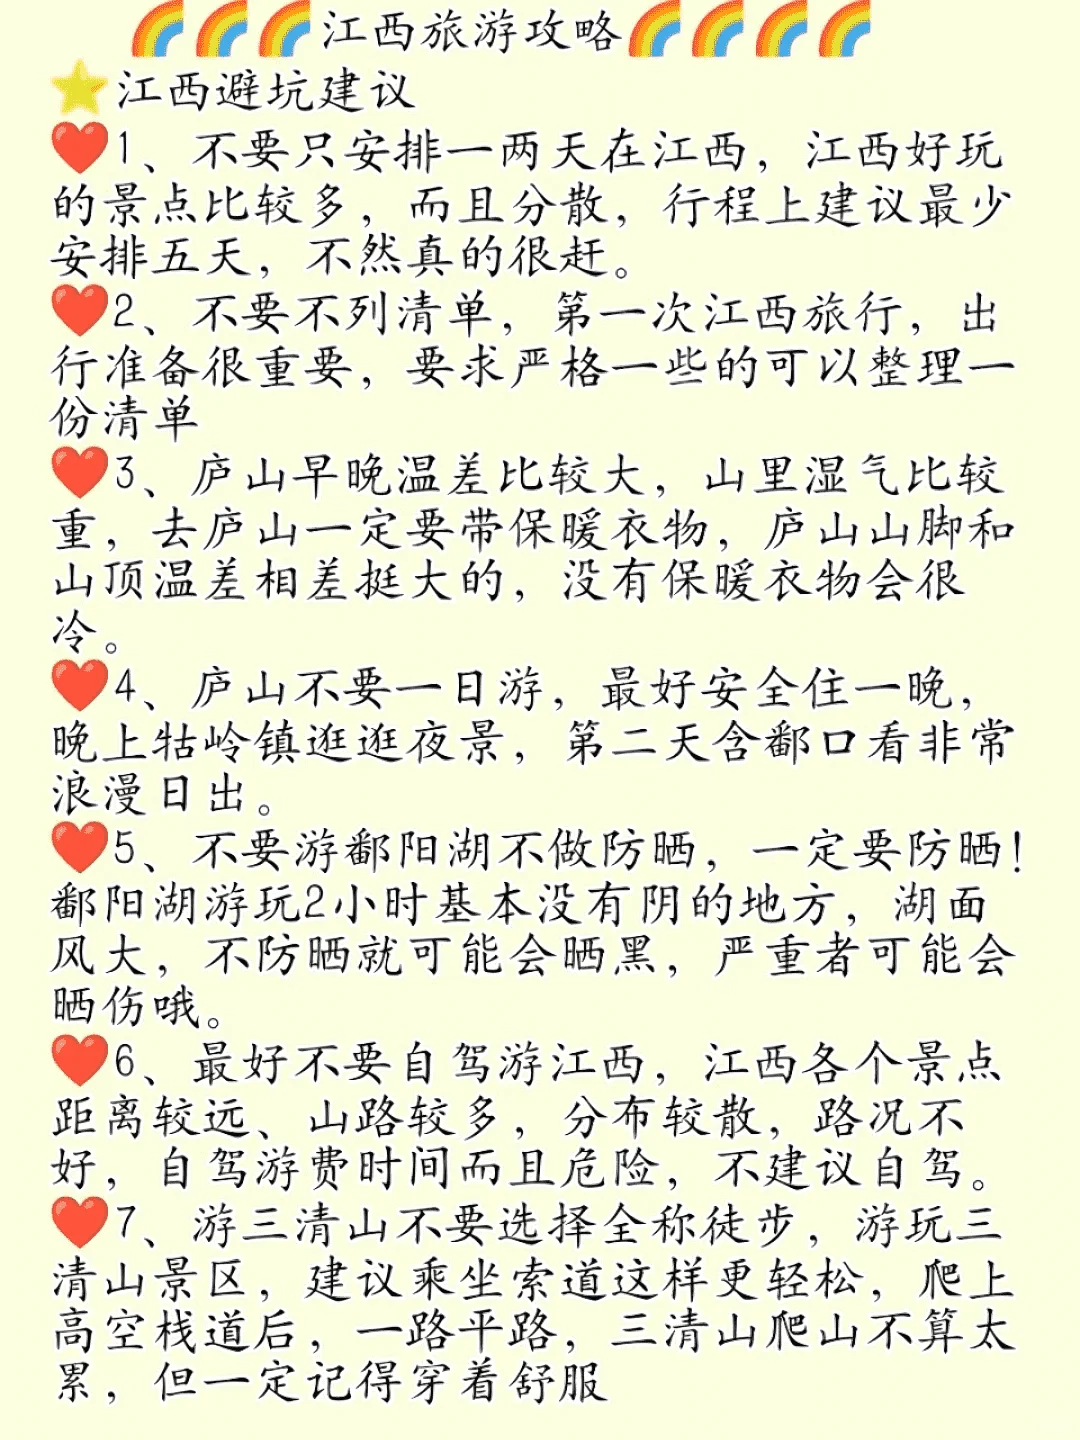 🌈🌈🌈江西旅游攻略🌈🌈🌈🌈
⭐江西避坑建议
❤️1、不要只安排一两天在江西，江西好玩
的景点比较多，而且分散，行程上建议最少
安排五天，不然真的很赶。
❤️2、不要不列清单，第一次江西旅行，出
行准备很重要，要求严格一些的可以整理一
份清单
❤️3、庐山早晚温差比较大，山里湿气比较
重，去庐山一定要带保暖衣物，庐山山脚和
山顶温差相差挺大的，没有保暖衣物会很
冷。
❤️4、庐山不要一日游，最好安全住一晚，
晚上牯岭镇逛逛夜景，第二天含鄱口看非常
浪漫日出。
❤️5、不要游鄱阳湖不做防晒，一定要防晒！
鄱阳湖游玩2小时基本没有阴的地方，湖面
风大，不防晒就可能会晒黑，严重者可能会
晒伤哦。
❤️6、最好不要自驾游江西，江西各个景点
距离较远、山路较多，分布较散，路况不
好，自驾游费时间而且危险，不建议自驾。
❤️7、游三清山不要选择全称徒步，游玩三
清山景区，建议乘坐索道这样更轻松，爬上
高空栈道后，一路平路，三清山爬山不算太
累，但一定记得穿着舒服